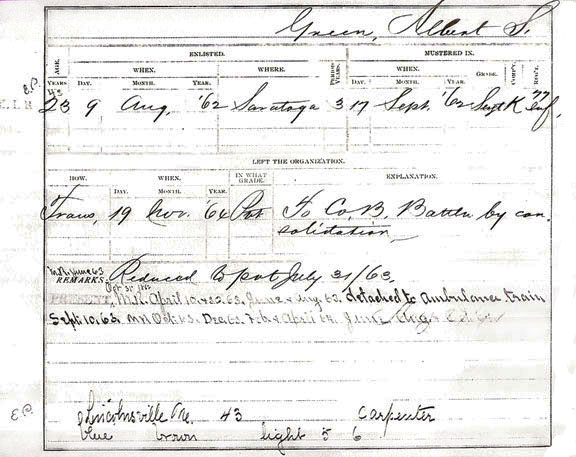 Green, Albert S.
ENLISTED. MUSTERED IN.
AGE. WHEN. WHERE. PERIOD WHEN. GRADE. CO'Y. REG'T.
YEARS. DAY. MONTH. YEAR. YEARS. DAY. MONTH. YEAR.
E.P.
43
23 9 Aug. '62 Saratoga 3 17 Sept. '62 Sergt K 77 Inf.
LEFT THE ORGANIZATION.
HOW. WHEN. IN WHAT GRADE. EXPLANATION.
DAY. MONTH. YEAR.
Trans, 19 Nov. '64 Pvt To Co. B. Battn by con
solidation
REMARKS: Reduced to pvt July 31/63.
PRESENT, April 10. 63, June & Aug 63. detached to ambulance train
Sept 10, 63. Oct 63. Dec 63. Feb & April 64. June Aug
E.P. Lincolnsville Me. 43 Carpenter
blue brown light 5 6